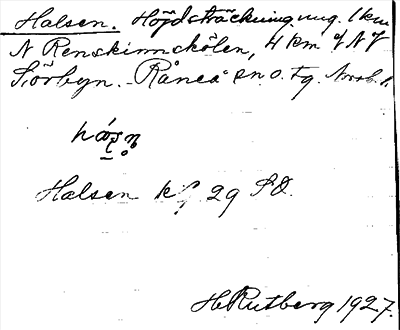 Halsen. Höjdsträckning. ung. 1 km
N Renskinnskölen, 4 km N
Sörbyn. Råneå sn o. tg. Norrb. l.
Halsen 29
H Rutberg 1927.